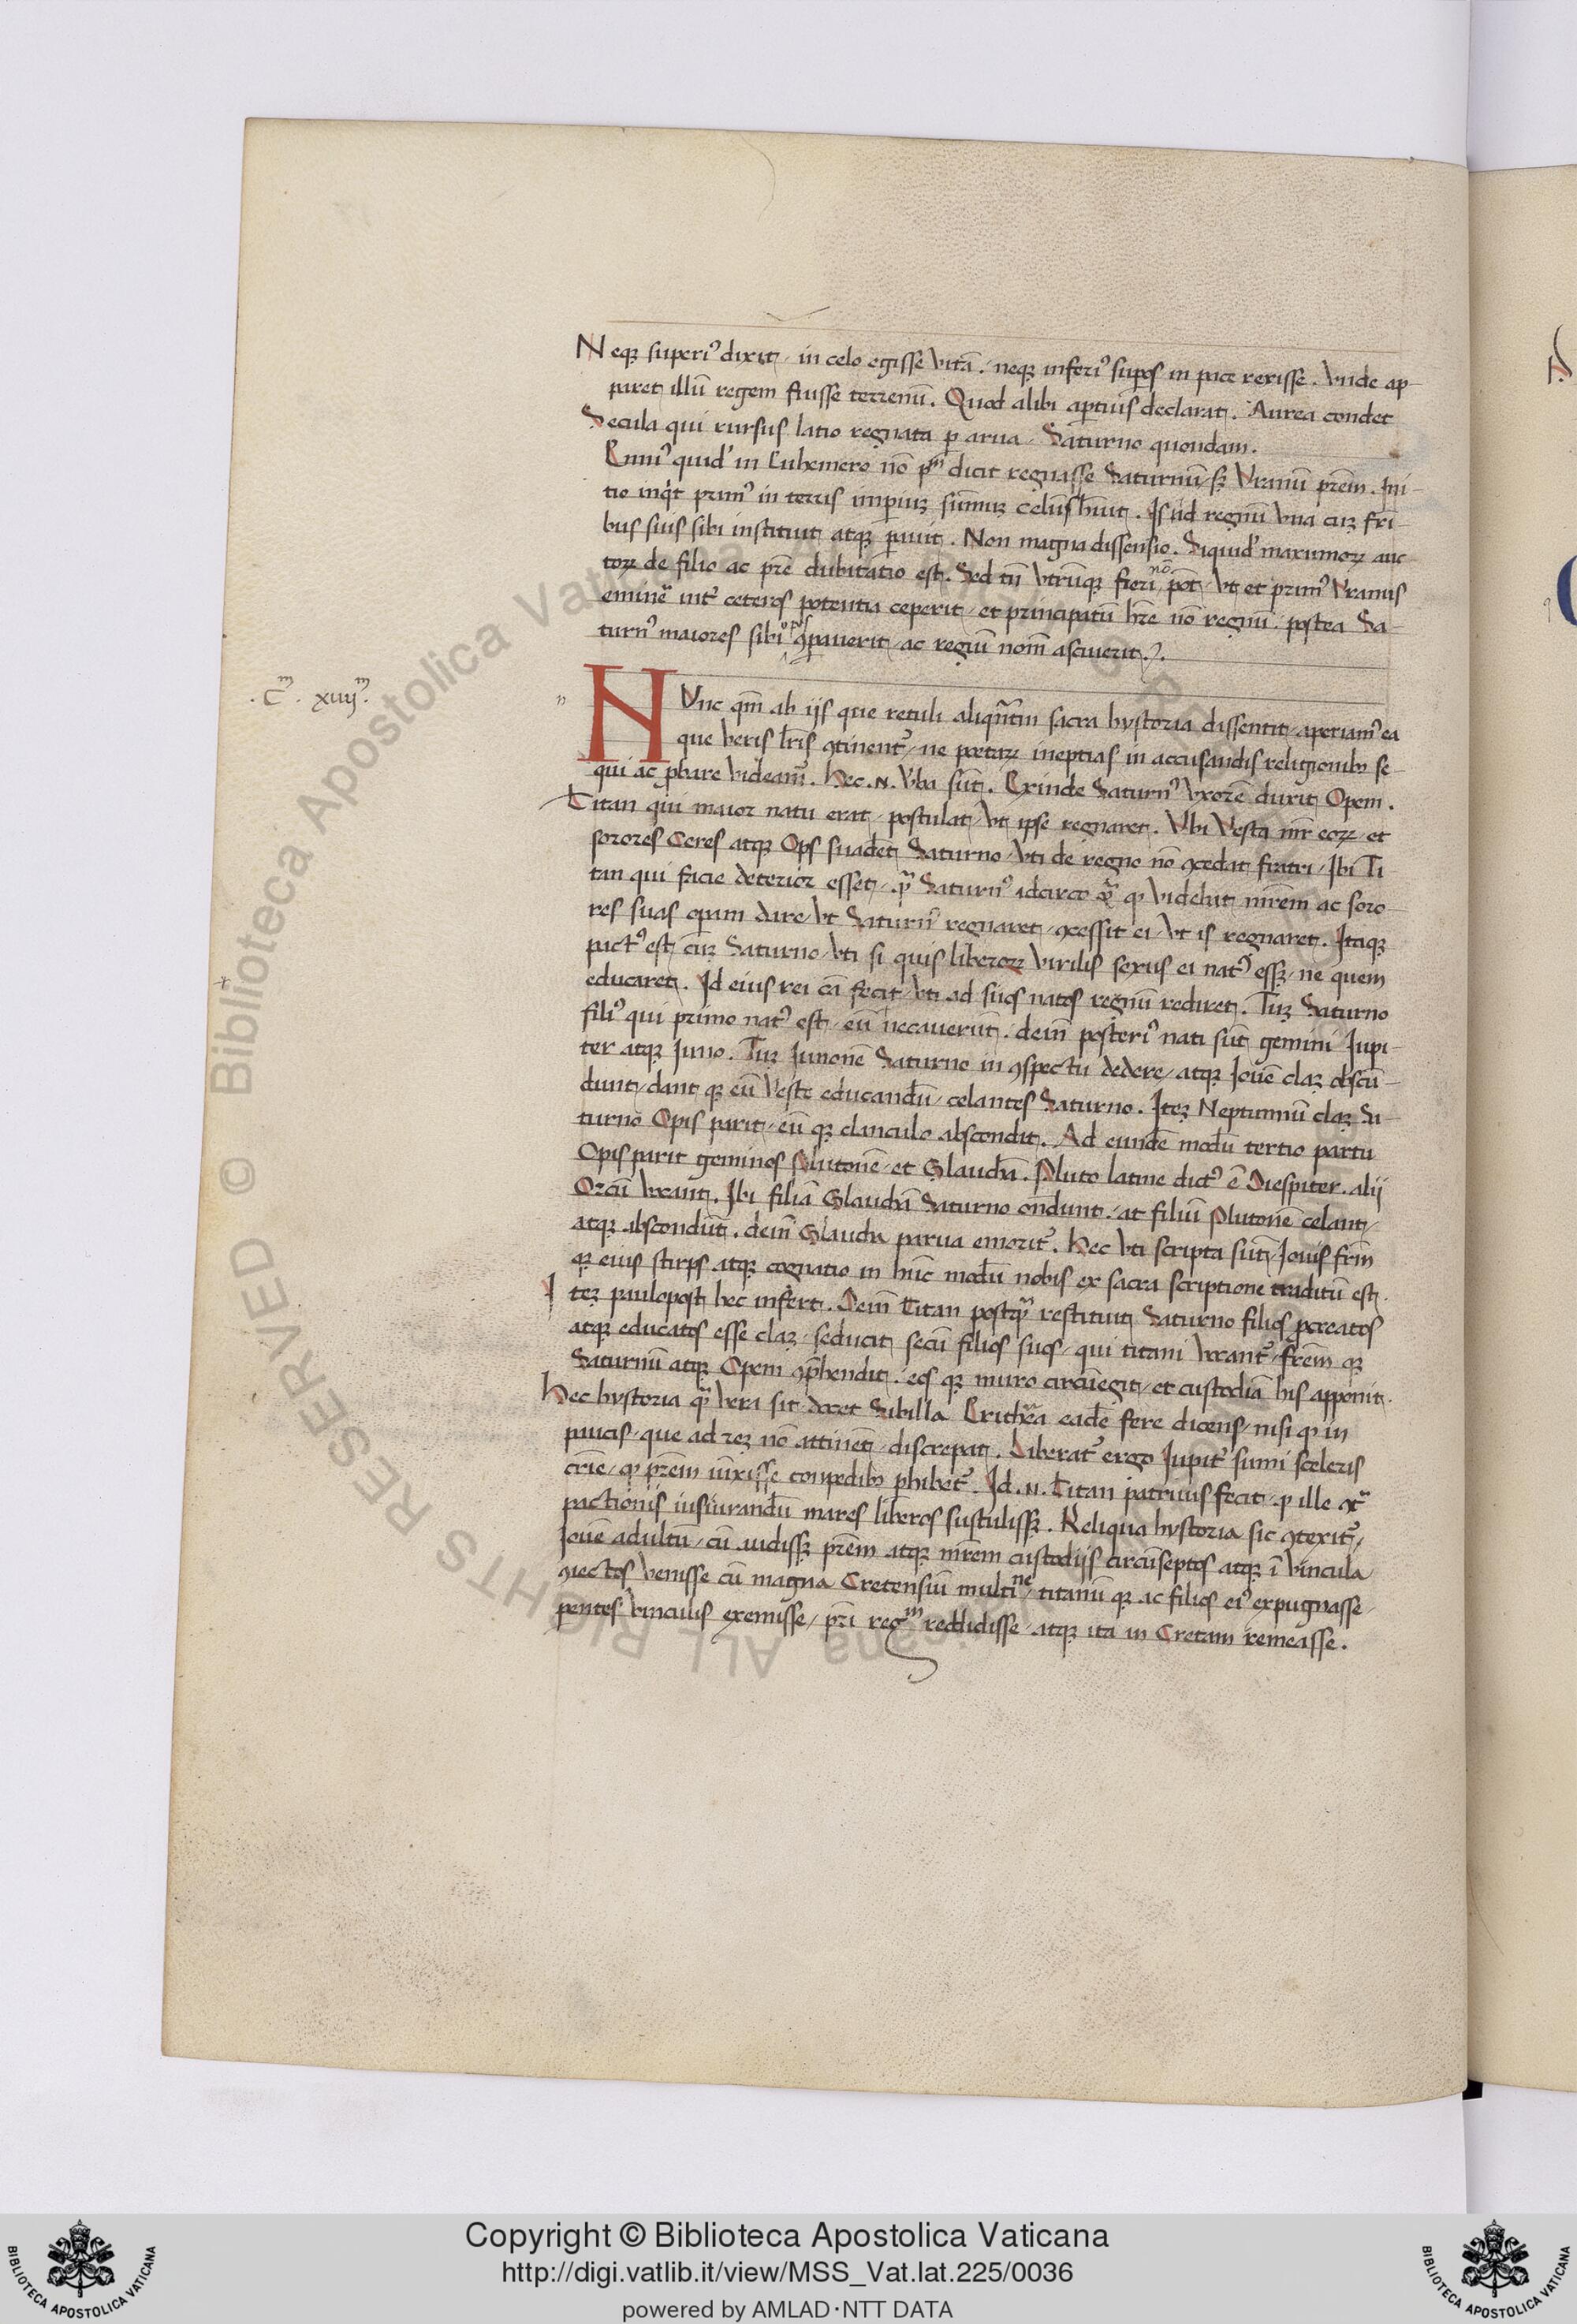 Neqꝫ superiꝰ dixit / in celo egisse vitā . neqꝫ inferiꝰ suꝑos in pace rexisse . Vnde ap-
paret illū regem fuisse terrenū . Quod alibi aꝑtius declarat . Aurea condet
Secula qui rursus latio regnata ꝑ arua / Saturno quondam .
Enniꝰ quid' in Euhemero nō pm dicit regnasse Saturnū / sꝫ Vranū prēm . Ini-
tio inqͥt primꝰ in terris imꝑiuꝫ sūmuꝫ celus hūit . Is id regnū vna cuꝫ fri-
bus suis sibi instituit atqꝫ ꝑauit . Non magna dissensio . Siquid' maxumoꝝ auc
toꝝ de filio ac prē dubitatio est . Sed tn̄ vtrūqꝫ fieri nō pōt / vt et primꝰ Vranus
eminē intꝰ ceteros potentia ceperit / et principatū hr̄e nō regnū . postea Sa-
turnꝰ maiores sibi oꝑes ꝯꝑauerit / ac regiū nom̄ asciuerit .
. Cm . xiiijm .
NVnc qm̄ ab ijs que retuli aliqn̄tm sacra hystoria dissentit / aperiamꝰ ea
que veris lr̄is ꝯtinentꝰ / ne poetaꝝ ineptias in accusandis religionibꝫ se-
qui ac ꝓbare videamꝰ . Hec .N. vba sūt . Exinde Saturnꝰ vxorē duxit Opem .
Titan qui maior natu erat / postulat / vt ipse regnaret . Vbi Vesta mr̄ eoꝝ et
sorores Ceres atqꝫ Ops suadēt Saturno / vti de regno nō ꝯcedat fratri / Ibi Ti
tan qui facie deterior esset / qͣ Saturnꝰ idcirco &ͣ ꝙ videbat mr̄em ac soro-
res suas oꝑam dare / vt Saturnꝰ regnaret / ꝯcessit ei / vt is regnaret . Itaqꝫ
pactꝰ est cuꝫ Saturno / vti si quis liberoꝝ virilis sexus ei natꝰ essꝫ / ne quem
educaret . Id eius rei cā fecit / vti ad suos natos regnū rediret . Tuꝫ Saturno
filiꝰ qui primo natꝰ est / eū necauerūt . dein̄ posteriꝰ nati sūt gemini Iupi-
ter atqꝫ Iuno . Tuꝫ Iunonē Saturno in ꝯspectu dedere / atqꝫ Iouē claꝫ abscū-
dunt / dant qꝫ eū veste educandū / celantes Saturno . Iteꝫ Neptunnū claꝫ Sa-
turno Opis parit / eū qꝫ clanculo abscondit . Ad eundē modū tertio partu
Opis parit geminos Plutonē / et Glaucā . Pluto latine dictꝰ ē Diespiter . alij
Orcū vocant . Ibi filiā Glaucā Saturno on̄dunt / at filiū Plutonē celant /
atqꝫ abscondūt . dein̄ Glauca parua emoritꝰ . Hec vti scripta sūt / Iouis frm̄
qꝫ eius stirps atqꝫ cognatio in hūc modū nobis ex sacra scriptione traditū est .
Iteꝫ paulopost hec infert . Dein̄ Titan postqͣ restituit Saturno filios ꝓcreatos
atqꝫ educatos esse claꝫ / seducit secū filios suos / qui titani vocantꝰ / frēm qꝫ
Saturnū atqꝫ Opem ꝯp̄hendit . eos qꝫ muro circūegit / et custodiā his apponit .
Hec hystoria qͣ vera sit / docet Sibilla Erithrea eadē fere dicens / nisi ꝙ in
paucis / que ad reꝫ nō attinēt / discrepat . Liberatꝰ ergo Iupitꝰ sumi sceleris
crīe / ꝙ prēm iūxisse compedibꝫ ꝑhibetꝰ . Id .N. Titan patruus fecit / ꝙ ille ꝯtͣ
pactionis iusiurandū mares liberos sustulissꝫ . Reliqua hystoria sic ꝯtexitꝰ /
Iouē adultū / cū audissꝫ prēm atqꝫ mr̄em custodijs circūseptos atqꝫ ī vincula
ꝯiectos venisse cū magna Cretensiū multine / titanū qꝫ ac filios eiꝰ expugnasse /
pentes vinculis exemisse / pri regm reddidisse / atqꝫ ita in Cretam remeasse .
Copyright © Biblioteca Apostolica Vaticana
http://digi.vatlib.it/view/MSS_Vat.lat.225/0036
powered by AMLAD·NTT DATA